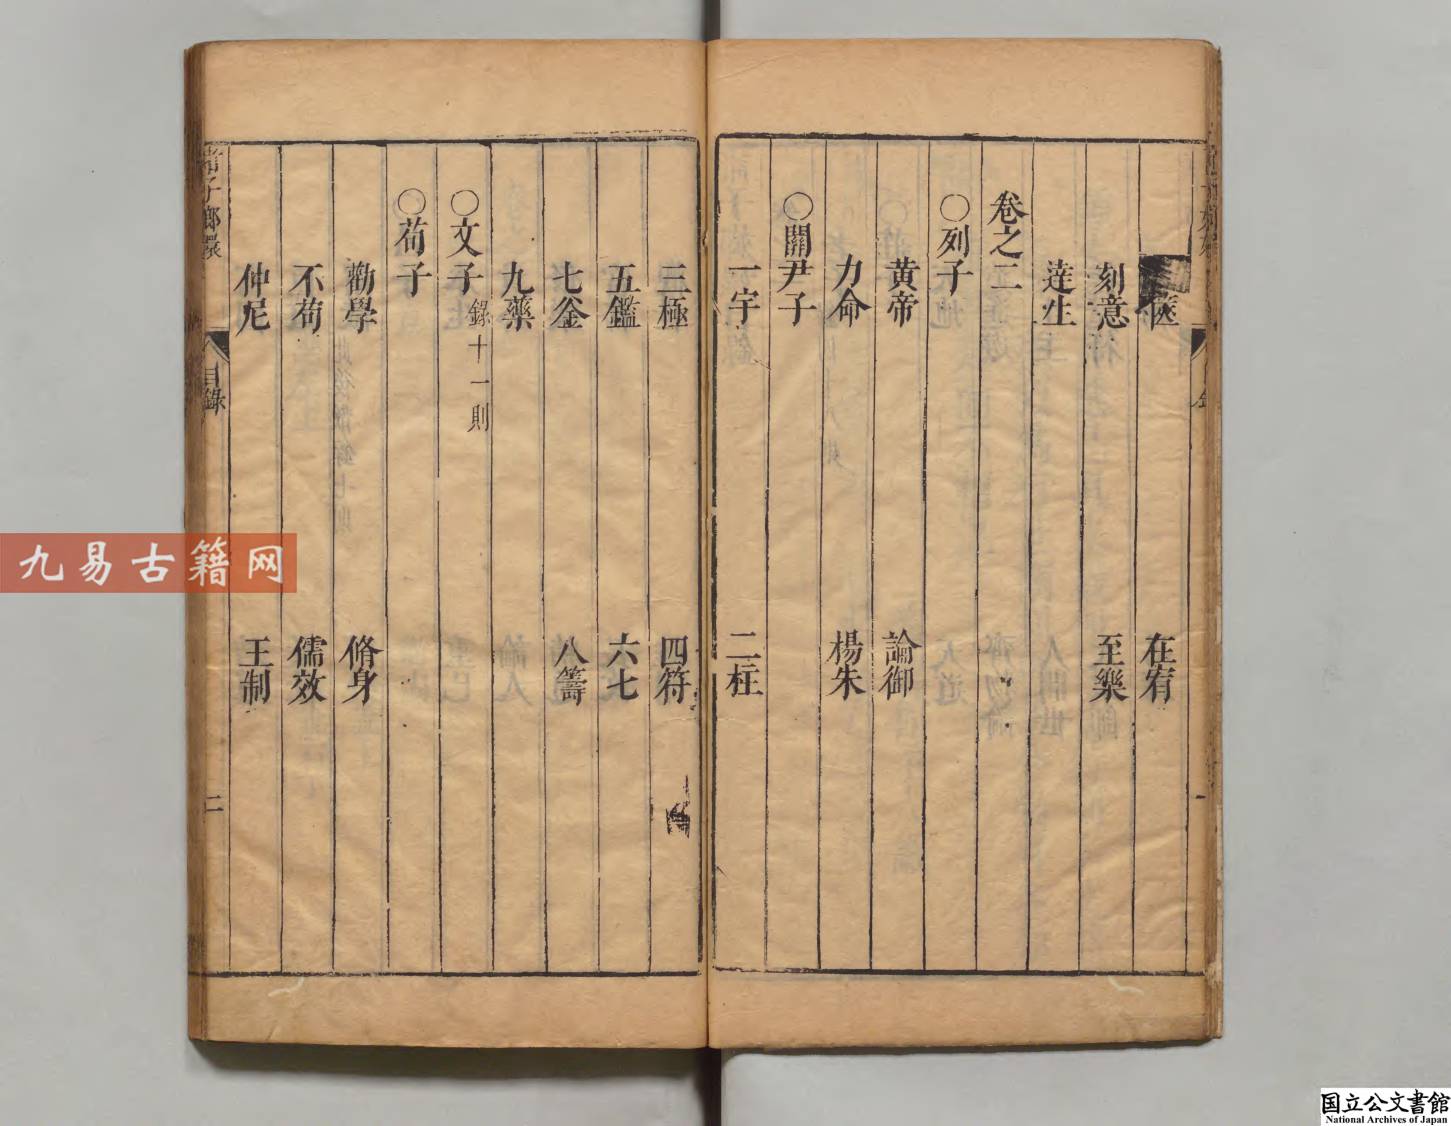 胠篋 在宥
刻意 至樂
達生
卷之二
○列子
黄帝 論御
力命 楊朱
○關尹子
一宇 二柱
三極 四符
五鑑 六七
七釜 八籌
九藥
○文子 錄十一則
○荀子
勸學 脩身
不苟 儒效
仲尼 王制
諸子瑯嬛 目錄 二
九易古籍网
国立公文書館
National Archives of Japan